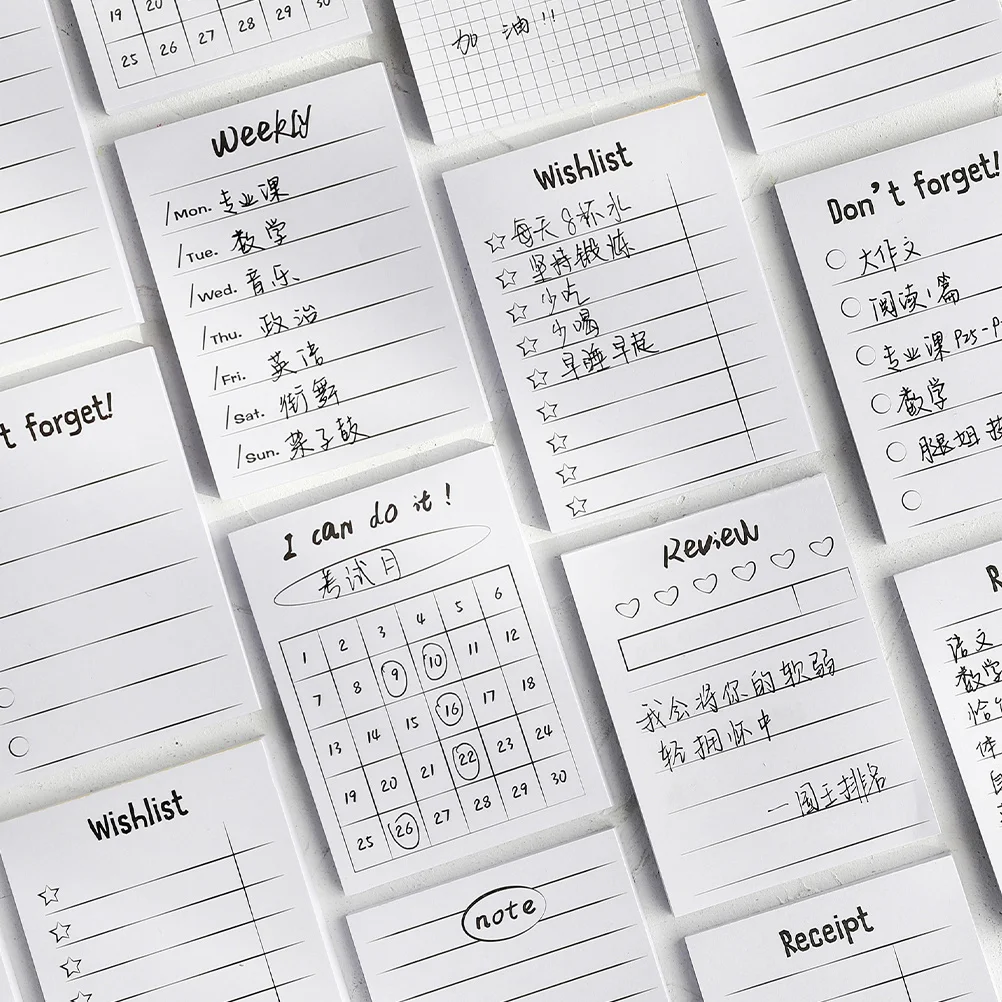 19 20 29 30
25 26 27 28
加油!!
Weekly
/Mon. 专业课
/Tue. 数学
/Wed. 音乐
/Thu. 政治
/Fri. 英语
/Sat. 街舞
/Sun. 架子鼓
Wishlist
每天8杯水
坚持锻炼
少吃
少喝
早睡早起
Don't forget!
大作文
阅读1篇
专业课 P25-P
数学
腿姐
t forget!
I can do it!
考试月
1 2 3 4 5 6
7 8 9 10 11 12
13 14 15 16 17 18
19 20 21 22 23 24
25 26 27 28 29 30
Review
我会将你的软弱
轻拥怀中
—国王排名
R
语文
数学
体
Wishlist
note
Receipt